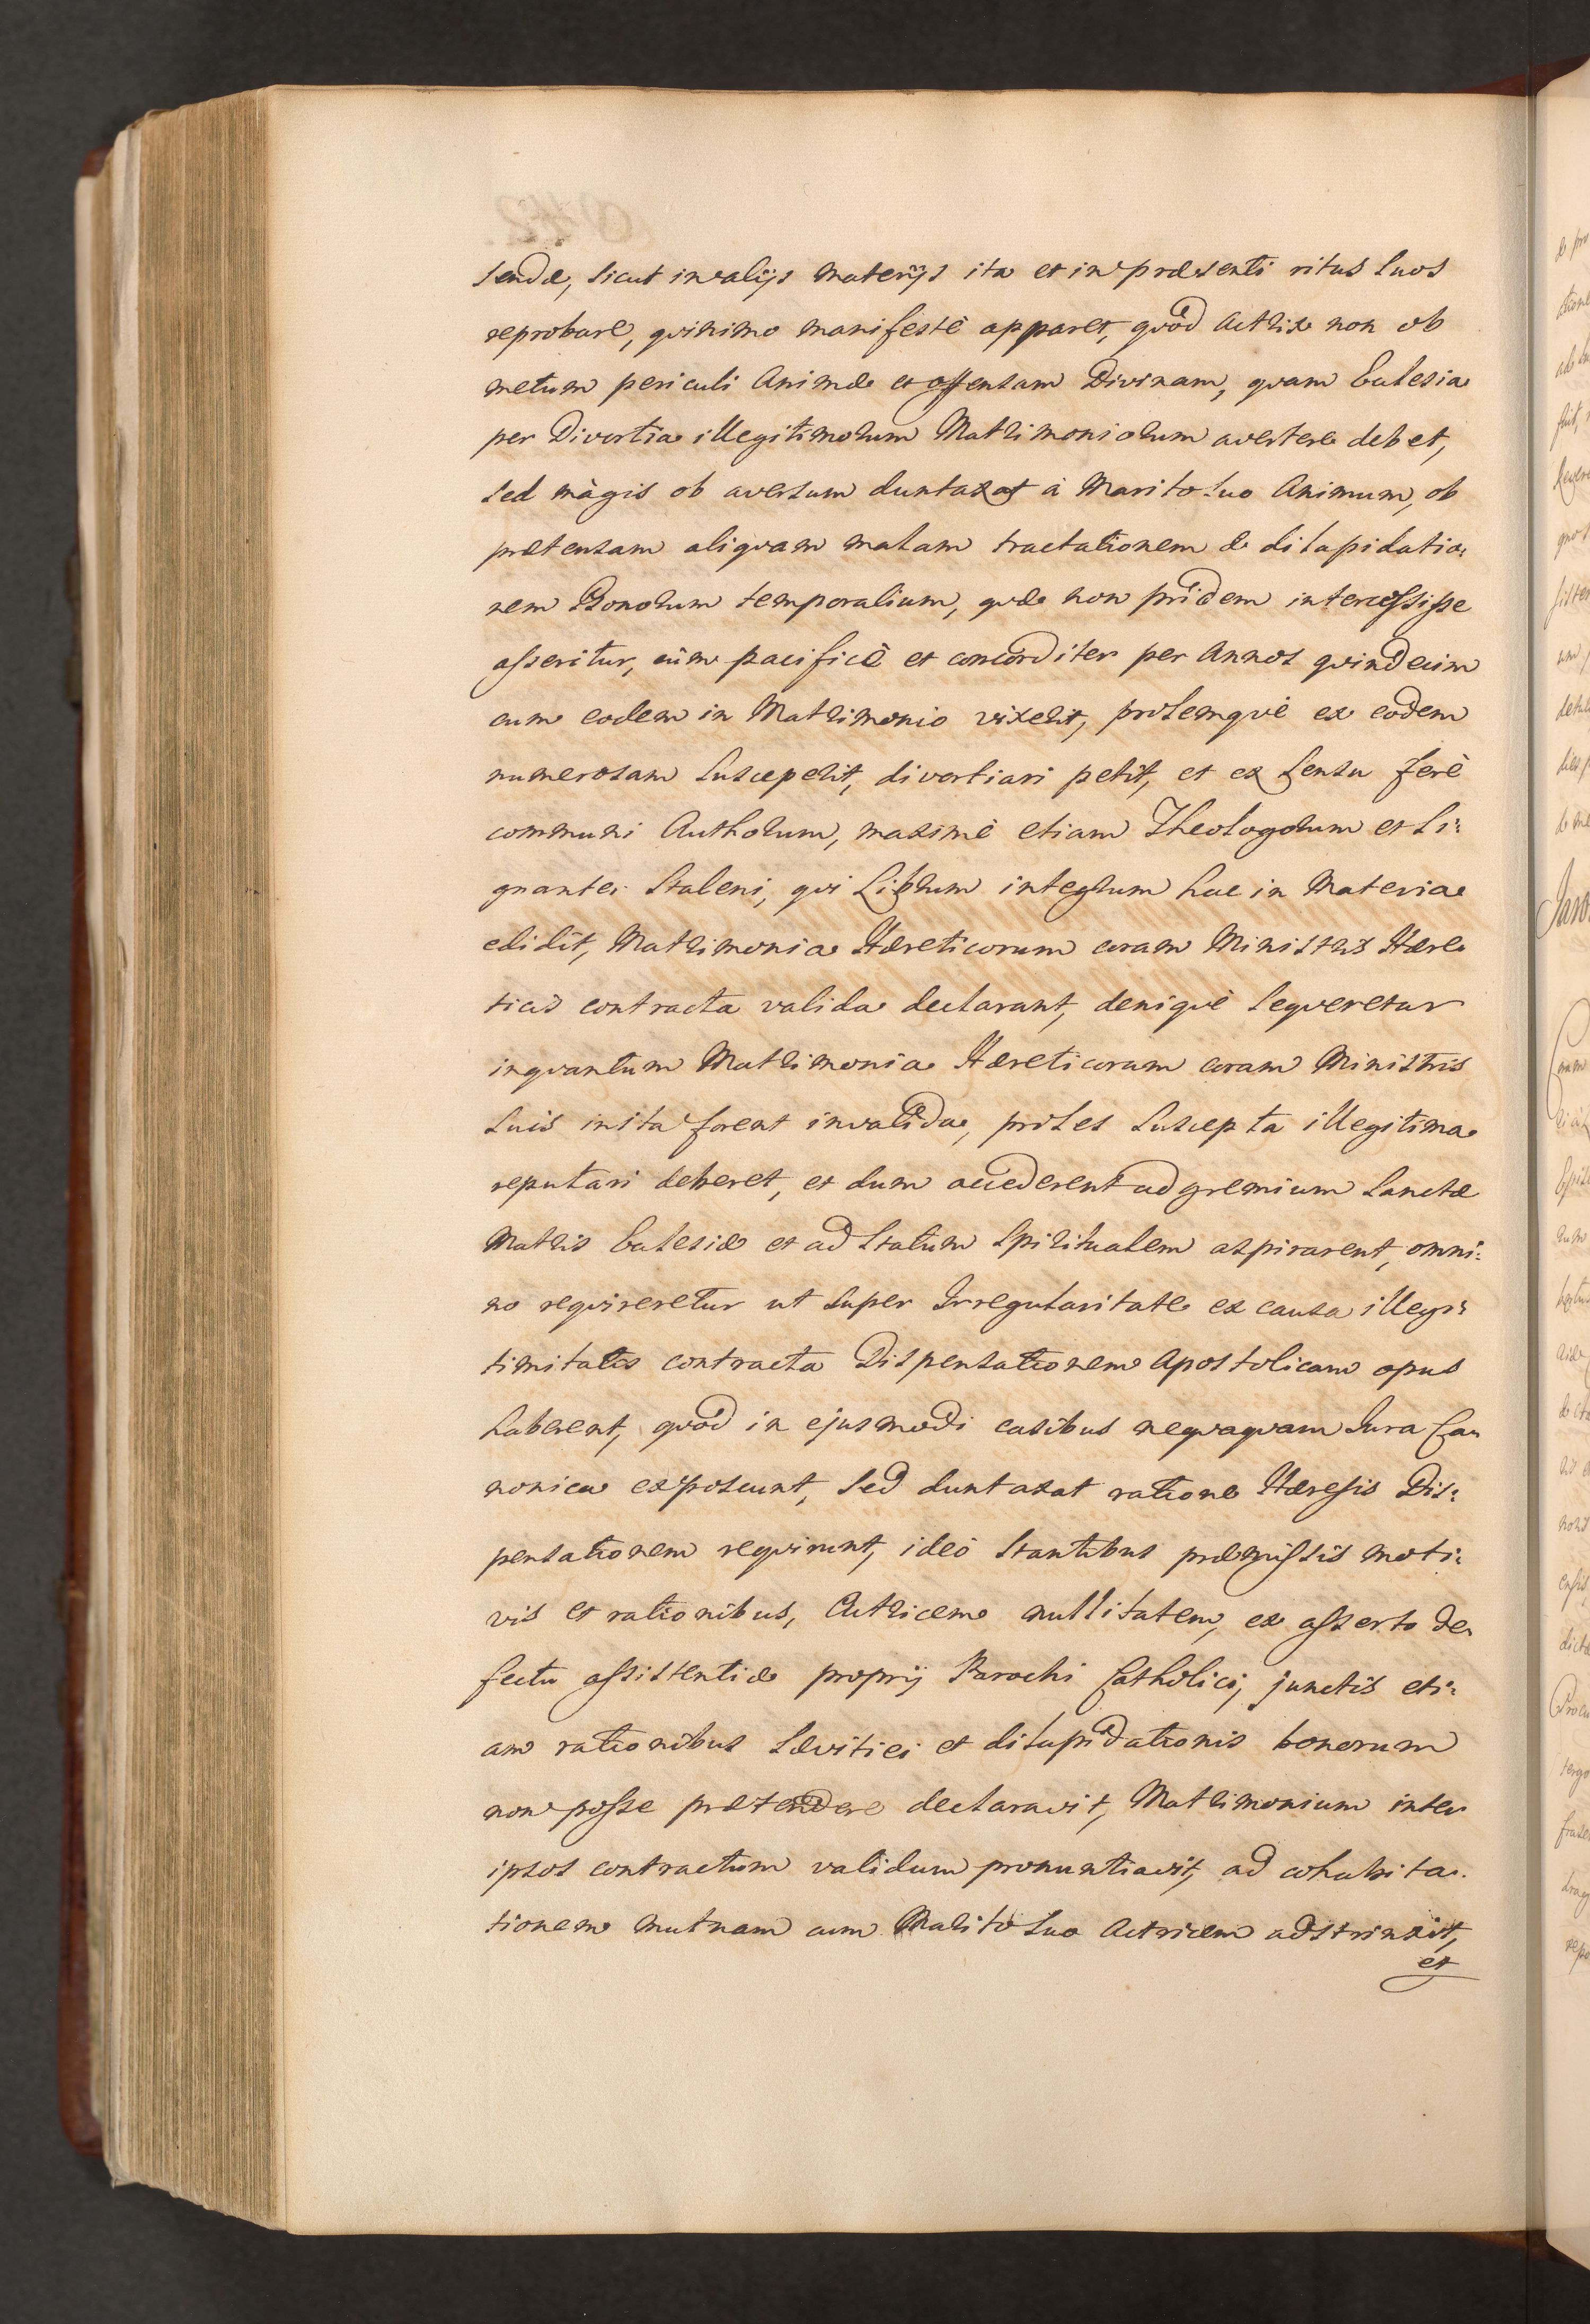 sendæ, sicut in alijs materijs ita et in præsenti ritus suos
reprobare, quinimo manifestè apparet, quòd Actrix non ob
metum periculi Animæ et offensam Divinam, quam Ecclesia
per Divortia illegitimorum Matrimoniorum avertere debet,
sed màgis ob aversum duntaxat à Marito suo Animum, ob
prætensam aliquam malam tractationem & dilapidatio:
nem Bonorum temporalium, quæ non pridem intercessisse
asseritur, cùm pacificè et concorditer per Annos quindecim
cum eodem in Matrimonio vixerit, prolemquè ex eodem
numerosam susceperit, divortiari petit, et ex sensu ferè
communi Authorum, maximè etiam Theologorum et si:
gnanter Staleni, qui Librum integrum hac in Materia
edidit, Matrimonia Hæreticorum coram Ministris Hære
ticis contracta valida declarant, deniquè sequeretur
inquantum Matrimonia Hæreticorum coram Ministris
suis inita forent invalida, proles suscepta illegitima
reputari deberet, et dum accederent ad gremium Sanctæ
Matris Ecclesiæ et ad Statum Spiritualem aspirarent, omni:
no requireretur ut super Irregularitate ex causa illegi:
timitatis contracta Dispensationem Apostolicam opus
haberent, quòd in ejusmodi casibus nequaquam Jura Ca:
nonica exposcunt, sed duntaxat ratione Hæresis Dis:
pensationem requirunt, ideò stantibus præmissis moti:
vis et rationibus, Actricem nullitatem, ex asserto de
fectu assistentiæ proprij Parochi Catholici, junctis eti:
am rationibus sævitiei et dilapidationis bonorum
non posse prætendere declaravit, Matrimonium inter
ipsos contractum validum pronuntiavit, ad cohabita:
tionem mutuam cum Marito suo Actricem adstrinxit,
et